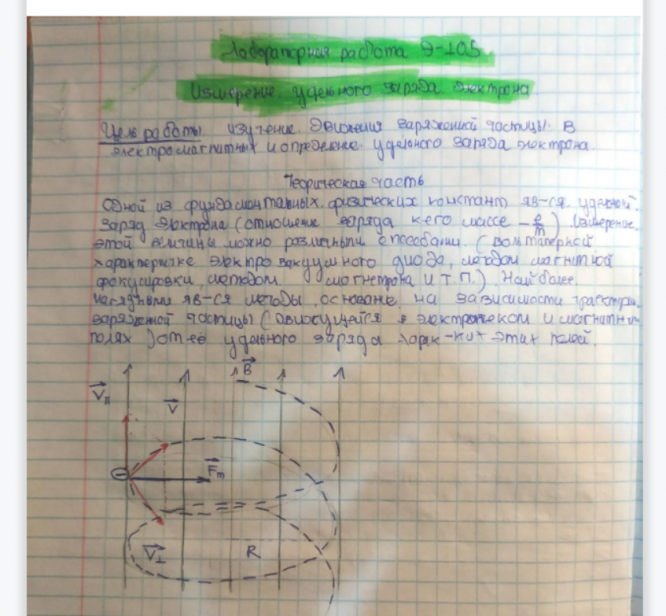 Лабораторная работа Э-105.
Измерение удельного заряда электрона
Цель работы изучение движения заряженной частицы в
электромагнитных и определение удельного заряда электрона.
Теорическая часть
Одной из фундаментальных физических констант яв-ся удельной
заряд электрона (отношение заряда к его массе - e/m). Измерение
этой величины можно различными способами (вольтамперной
характеристике электровакуумного диода, методом магнитной
фокусировки, методом магнетрона и т.п.) Наиболее
наглядными яв-ся методы, основане на зависимости траектри
заряженной частицы (движущейся в и магнитн-
полях) от её удельного заряда и этих полей.
V⃗ıı V⃗ B⃗
F⃗m
V⃗⊥ R